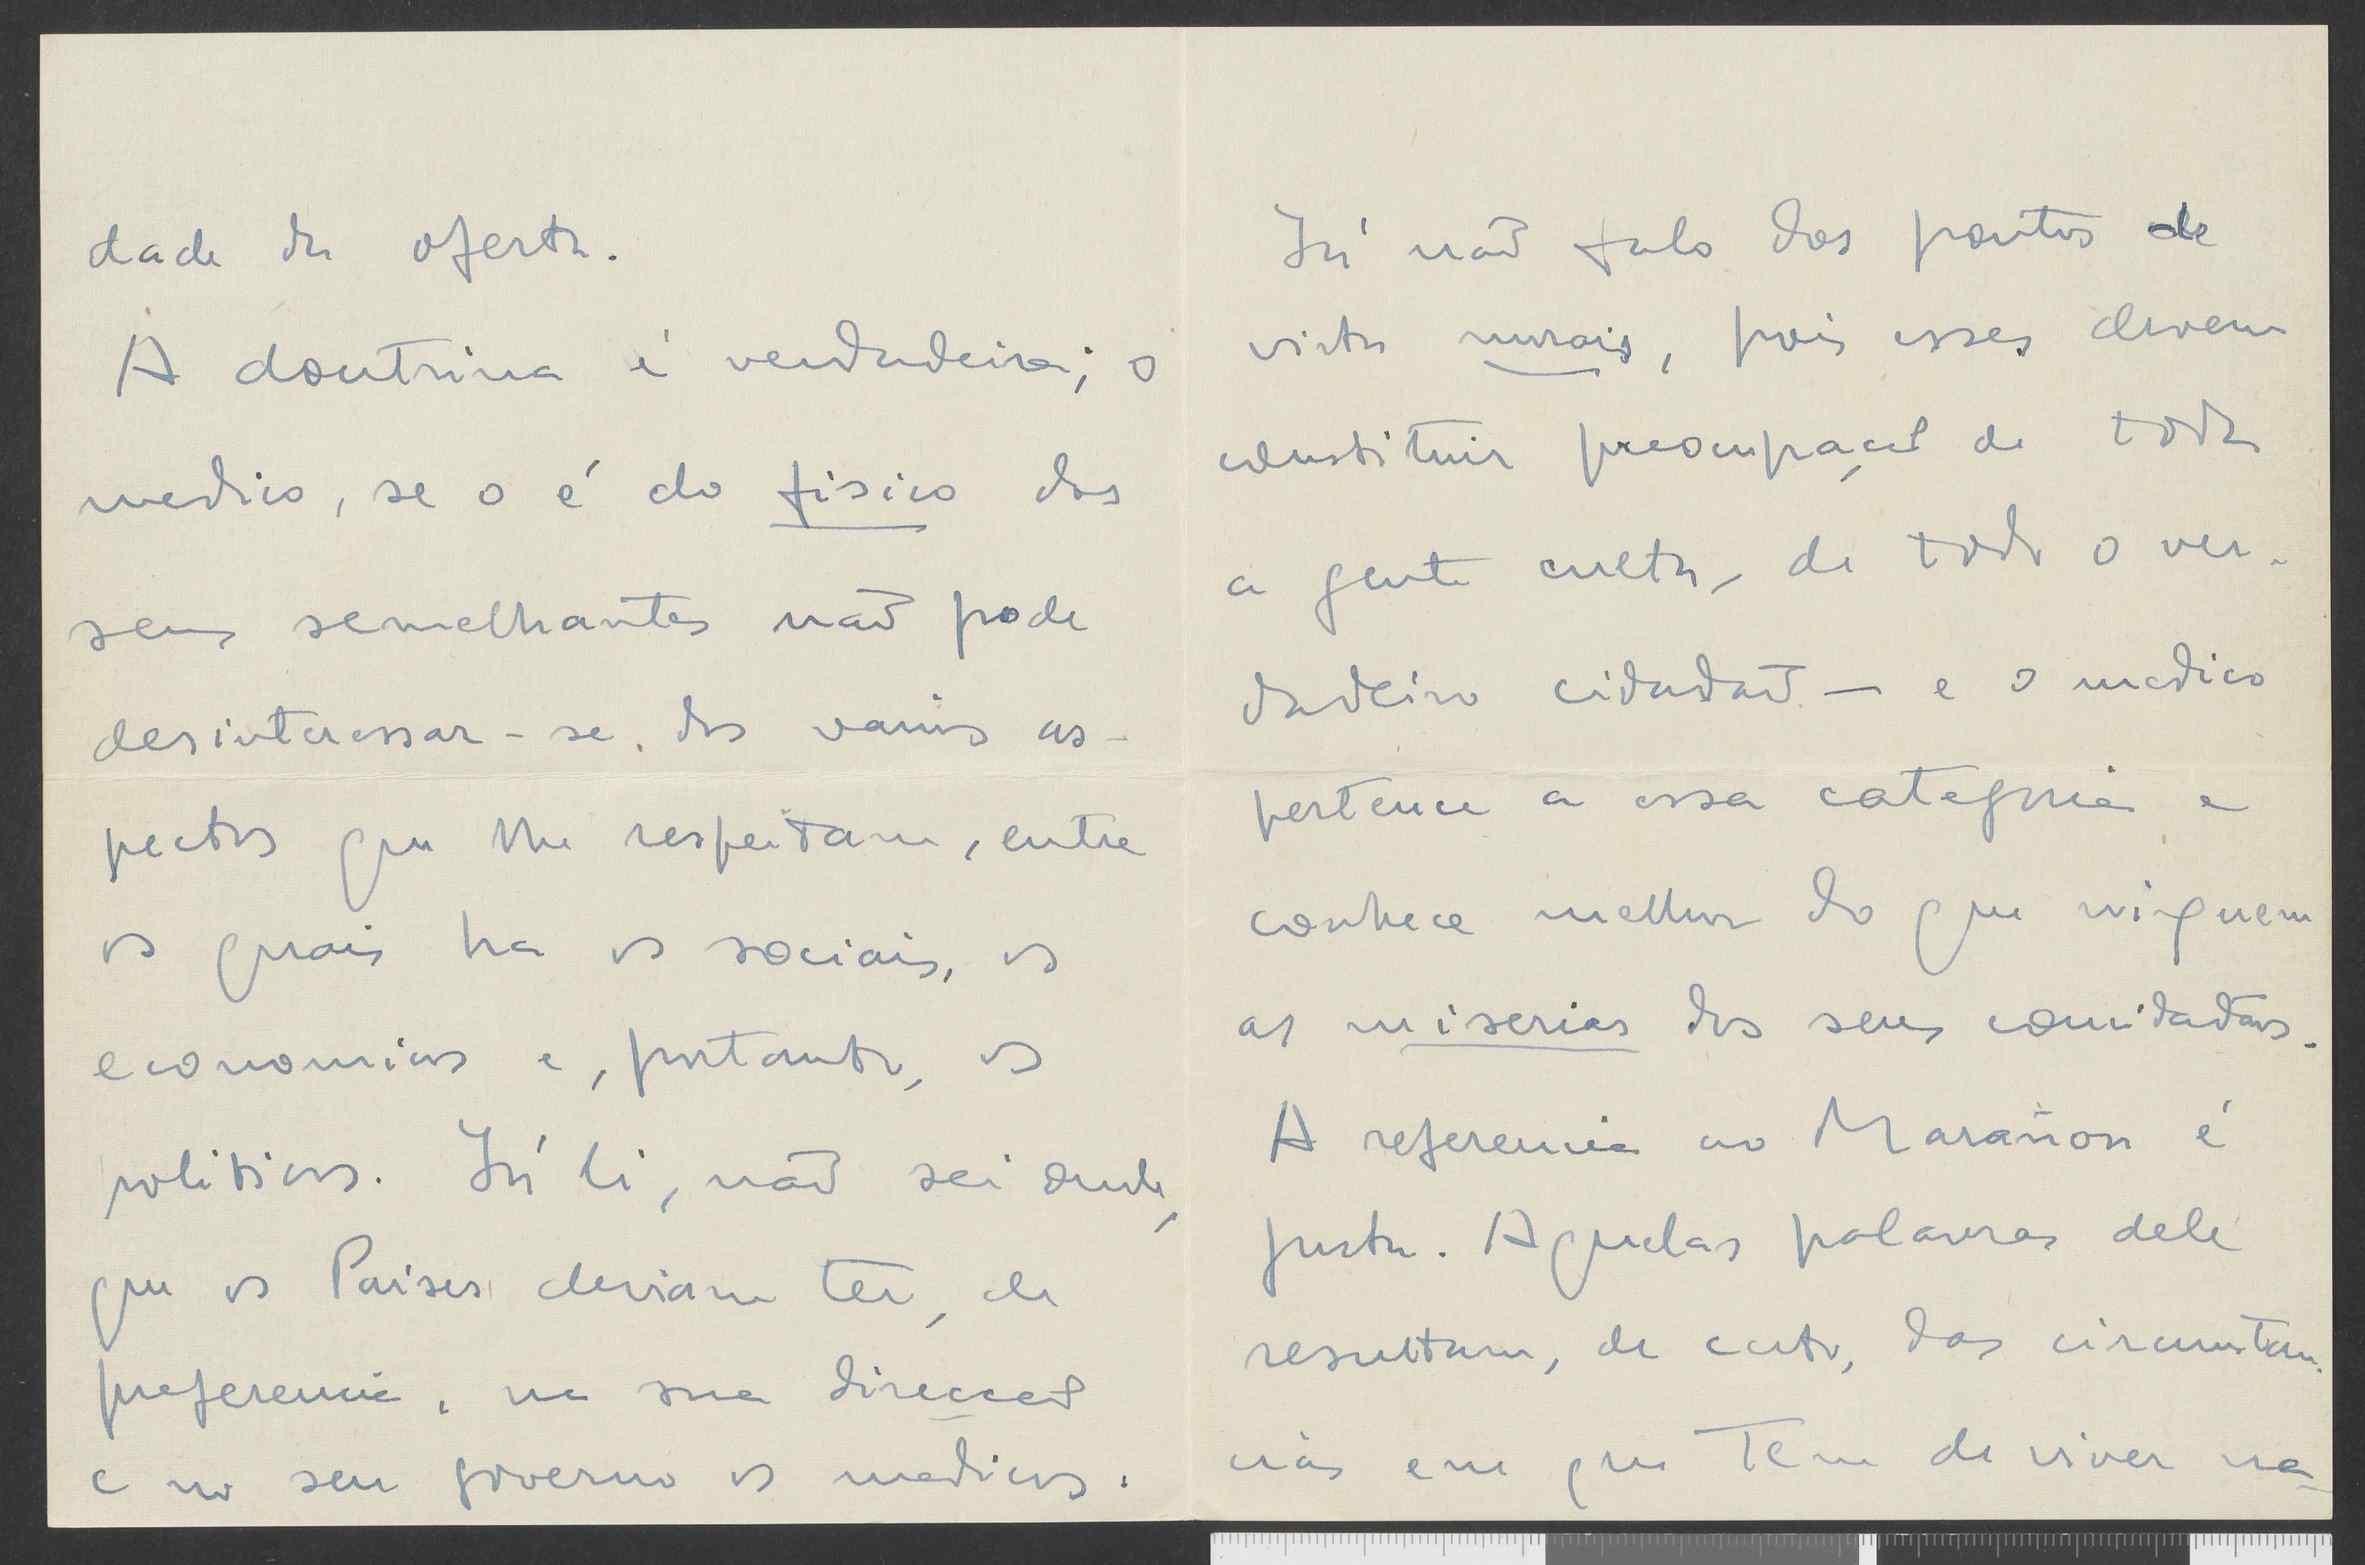 dade da oferta.
A doutrina é verdadeira; o
medico, se o é do fisico dos
seus semelhantes não pode
desinteressar-se. dos varios as-
pectos que lhe respeitam, entre
os quais ha os sociais, os
economicos e, portanto, os
politicos. Já li, não sei onde,
que os Paises deviam ter, de
preferencia, na sua direcção
e no seu governo os medicos.
Já não falo dos pontos de
vista morais, pois esses devem
constituir preocupação de toda
a gente culta, de todo o ver-
dadeiro cidadão — e o medico
pertence a essa categoria e
conhece melhor do que ninguem
as miserias dos seus concidadãos.
A referencia ao Marañon é
justa. Aquelas palavras dele
resultam, de certo, das circunstan-
cias em que tem de viver na